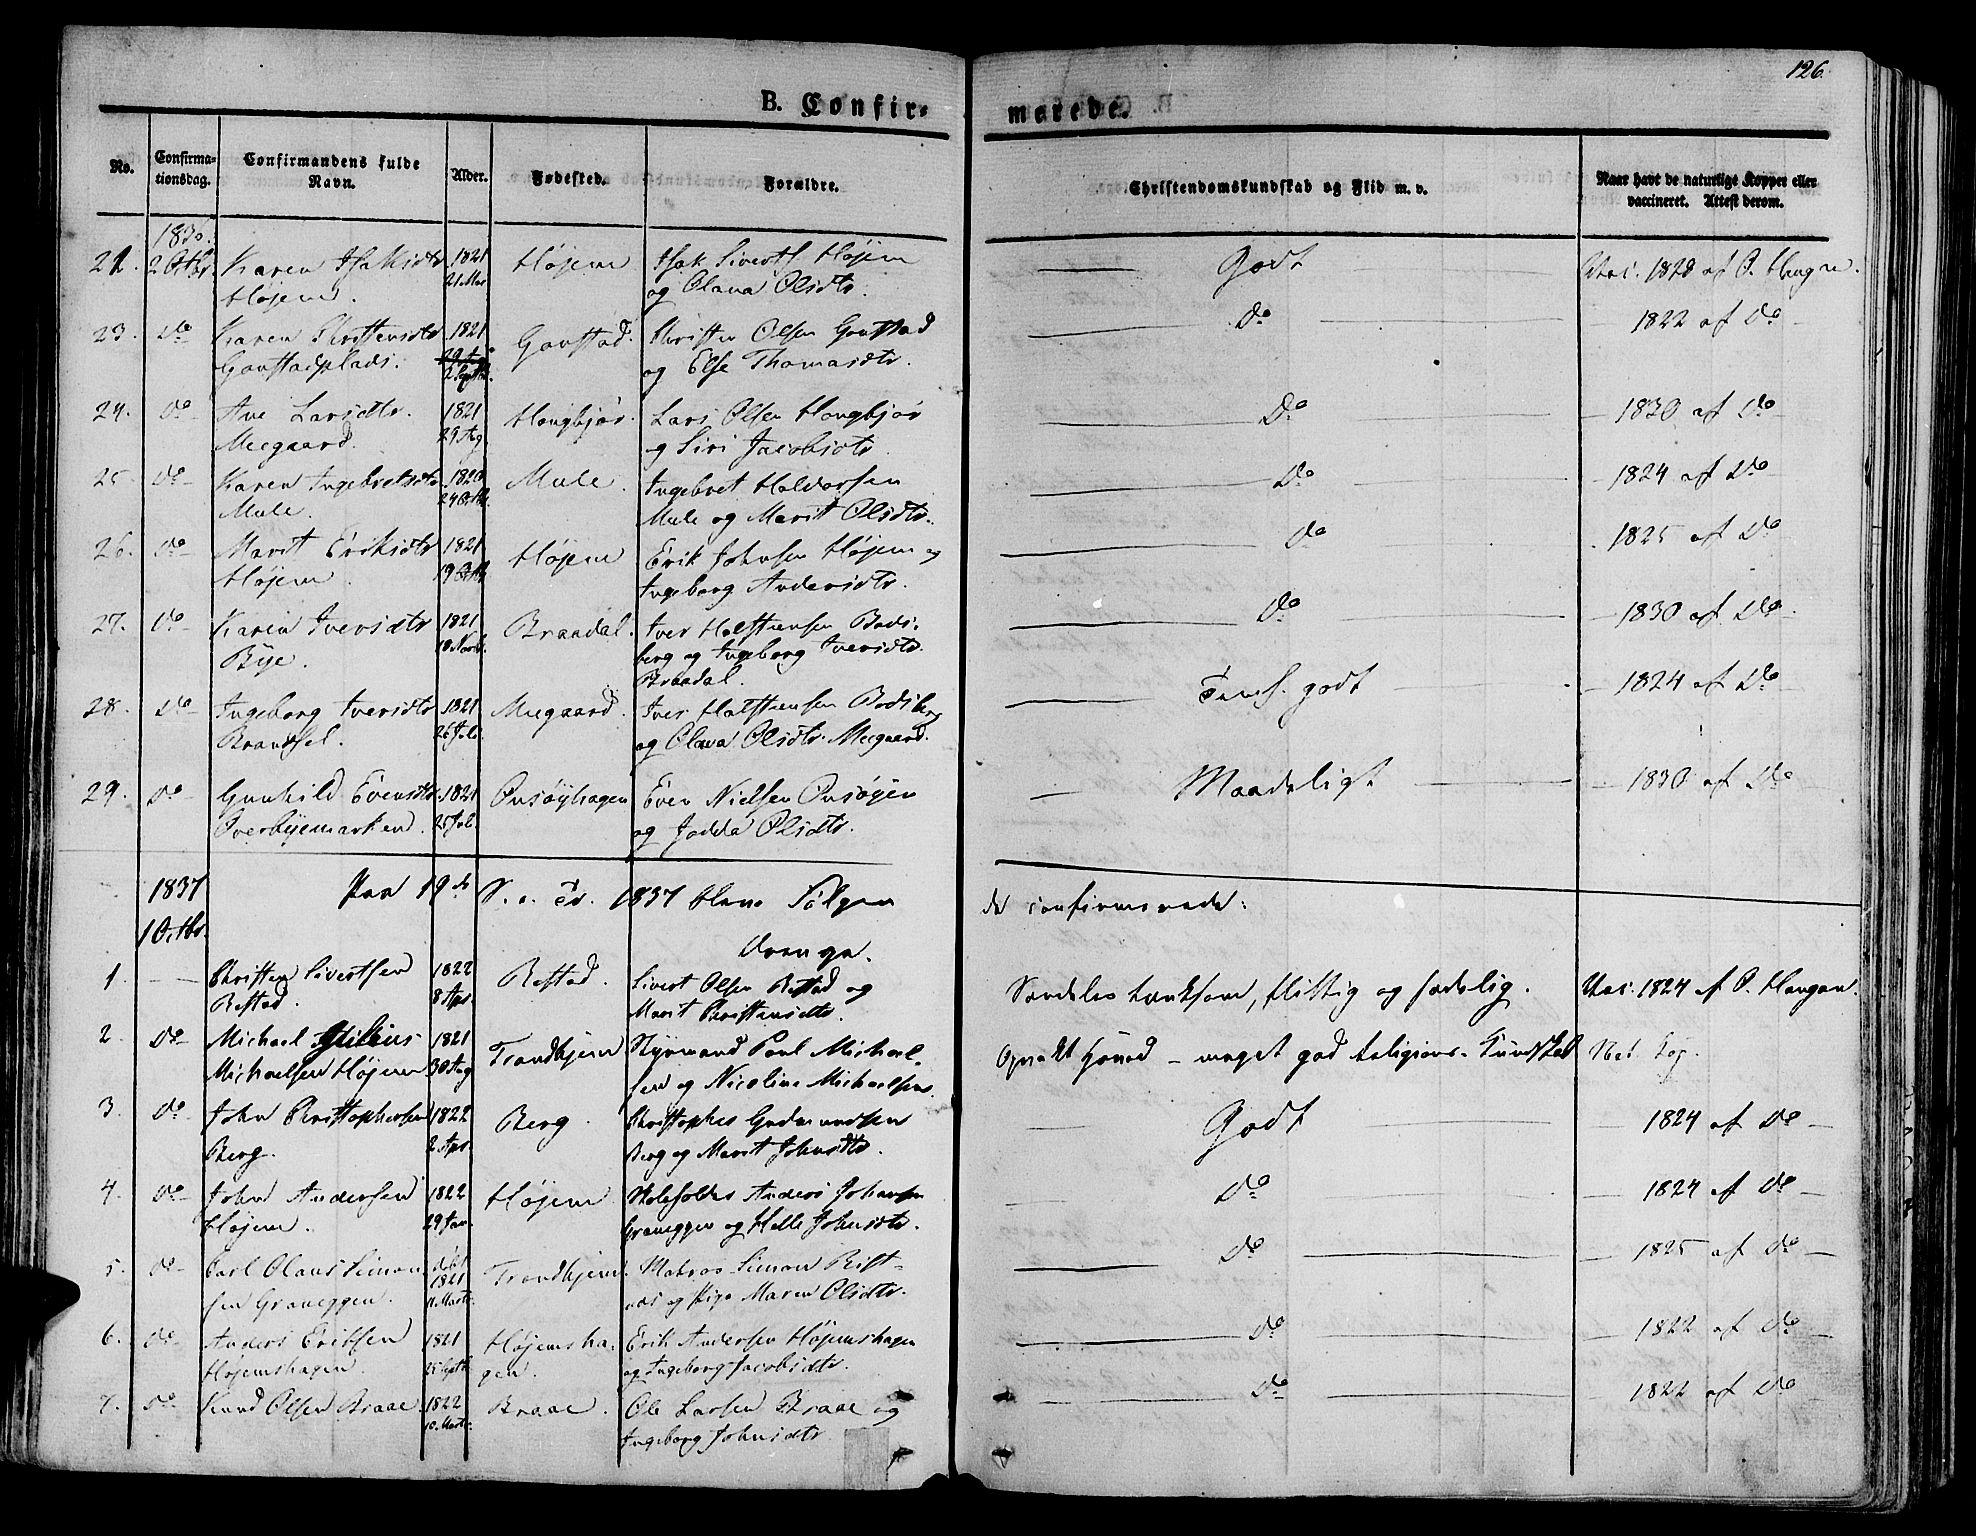 126.
B. Confir-
marede.
No.
Confirma-
tionsdag.
Confirmandens fulde
Navn.
Alder.
Fødested.
Forældre.
Christendomskundskab og Flid m. v.
Naar havt de naturlige Kopper eller
vaccineret. Attest derom.
2 Octbr.
Karen Isaksdtr
Højem.
1821
21 Mar
Højem
Isak Siverts. Højem
og Olava Olsdtr.
Godt
Vac. 1828 af O. Haugen.
23. Do
Karen Christensdtr
Gaustadplads.
1821
2 Septbr.
Gaustad.
Christen Olsen Gaustad
og Else Thomasdtr.
Do
1822 af Do
24. Do
Ane Larsdtr.
Meegaard.
1821
29 Aug.
Hougbjør.
Lars Olsen Hougbjør
og Siri Jacobsdtr.
Do
1830 af Do
25. Do
Karen Ingebretsdtr
Mule.
24 Octbr.
Mule.
Ingebret Haldorsen
Mule og Marit Olsdtr.
Do
1824 af Do
26. Do
Marit Eriksdtr
Højem.
1821
19 Octbr.
Højem
Erik Johnsen Højem og
Ingeborg Andersdtr.
Do
1825 af Do
27. Do
Karen Iversdtr
Bye.
1821
18 Novb.
Braadal.
Iver Halstensen Bods-
berg og Ingeborg Iversdtr.
Braadal.
Do
1830 af Do.
28. Do
Ingeborg Iversdtr
1821
26 Jul.
Meegaard.
Iver Halstensen Bodsberg
og Olava Olsdtr. Meegaard.
Tems. godt
1824 af Do
29. Do
Gunhild Evensdtr
Overbyemarken.
1821
25 Jul.
Onsøyhagen
Even Nielsen Onsøyen
og Jodda Olsdtr.
Maadeligt
1830 af Do
1837
1 Octbr.
Paa 19de S. e. Tr. 1837
confirmerede:
Drenge.
1
Christen Sivertsen
Restad.
1822
8 Apr.
Restad.
Sivert Olsen Restad og
Marit Christensdtr.
Særdeles tænksom, flittig og sædelig.
Vac. 1824 af O. Haugen.
2. Do
Michael
Michaelsen Højem
1821
30 Aug
Trondhjem
Styrmand Poul Michael-
sen og Nicoline Michaelsens.
Opvakt Hoved – meget god Religions-Kundskab
Nat. Kop.
3. Do
John Christophersen
Berg.
1822
2 Apr.
Berg.
Christopher Gudmundsen
Berg og Marit Johnsdtr.
Godt
1824 af Do
4. Do
John Andersen
Højem.
1822
29 Jan.
Højem
Skoleholder Anders Johansen
Graneggen og Helle Johnsdtr.
Do
1824 af Do
5. Do
Carl Olaus Simon-
sen Graneggen.
døbt
1821
11. Marts.
Trondhjem.
Matros Simon Rist-
næs og Pige Maren Olsdtr.
Do
1825 af Do
6. Do
Anders Eriksen
Højemshagen.
1821
25 Septb.
Højemsha-
gen.
Erik Andersen Højemshagen
og Ingeborg Jacobsdtr.
Do
1822 af Do
7. Do
Knud Olsen Braae
1822
10. Marts.
Braae.
Ole Larsen Braae og
Ingeborg Johnsdtr.
Do
1822 af Do